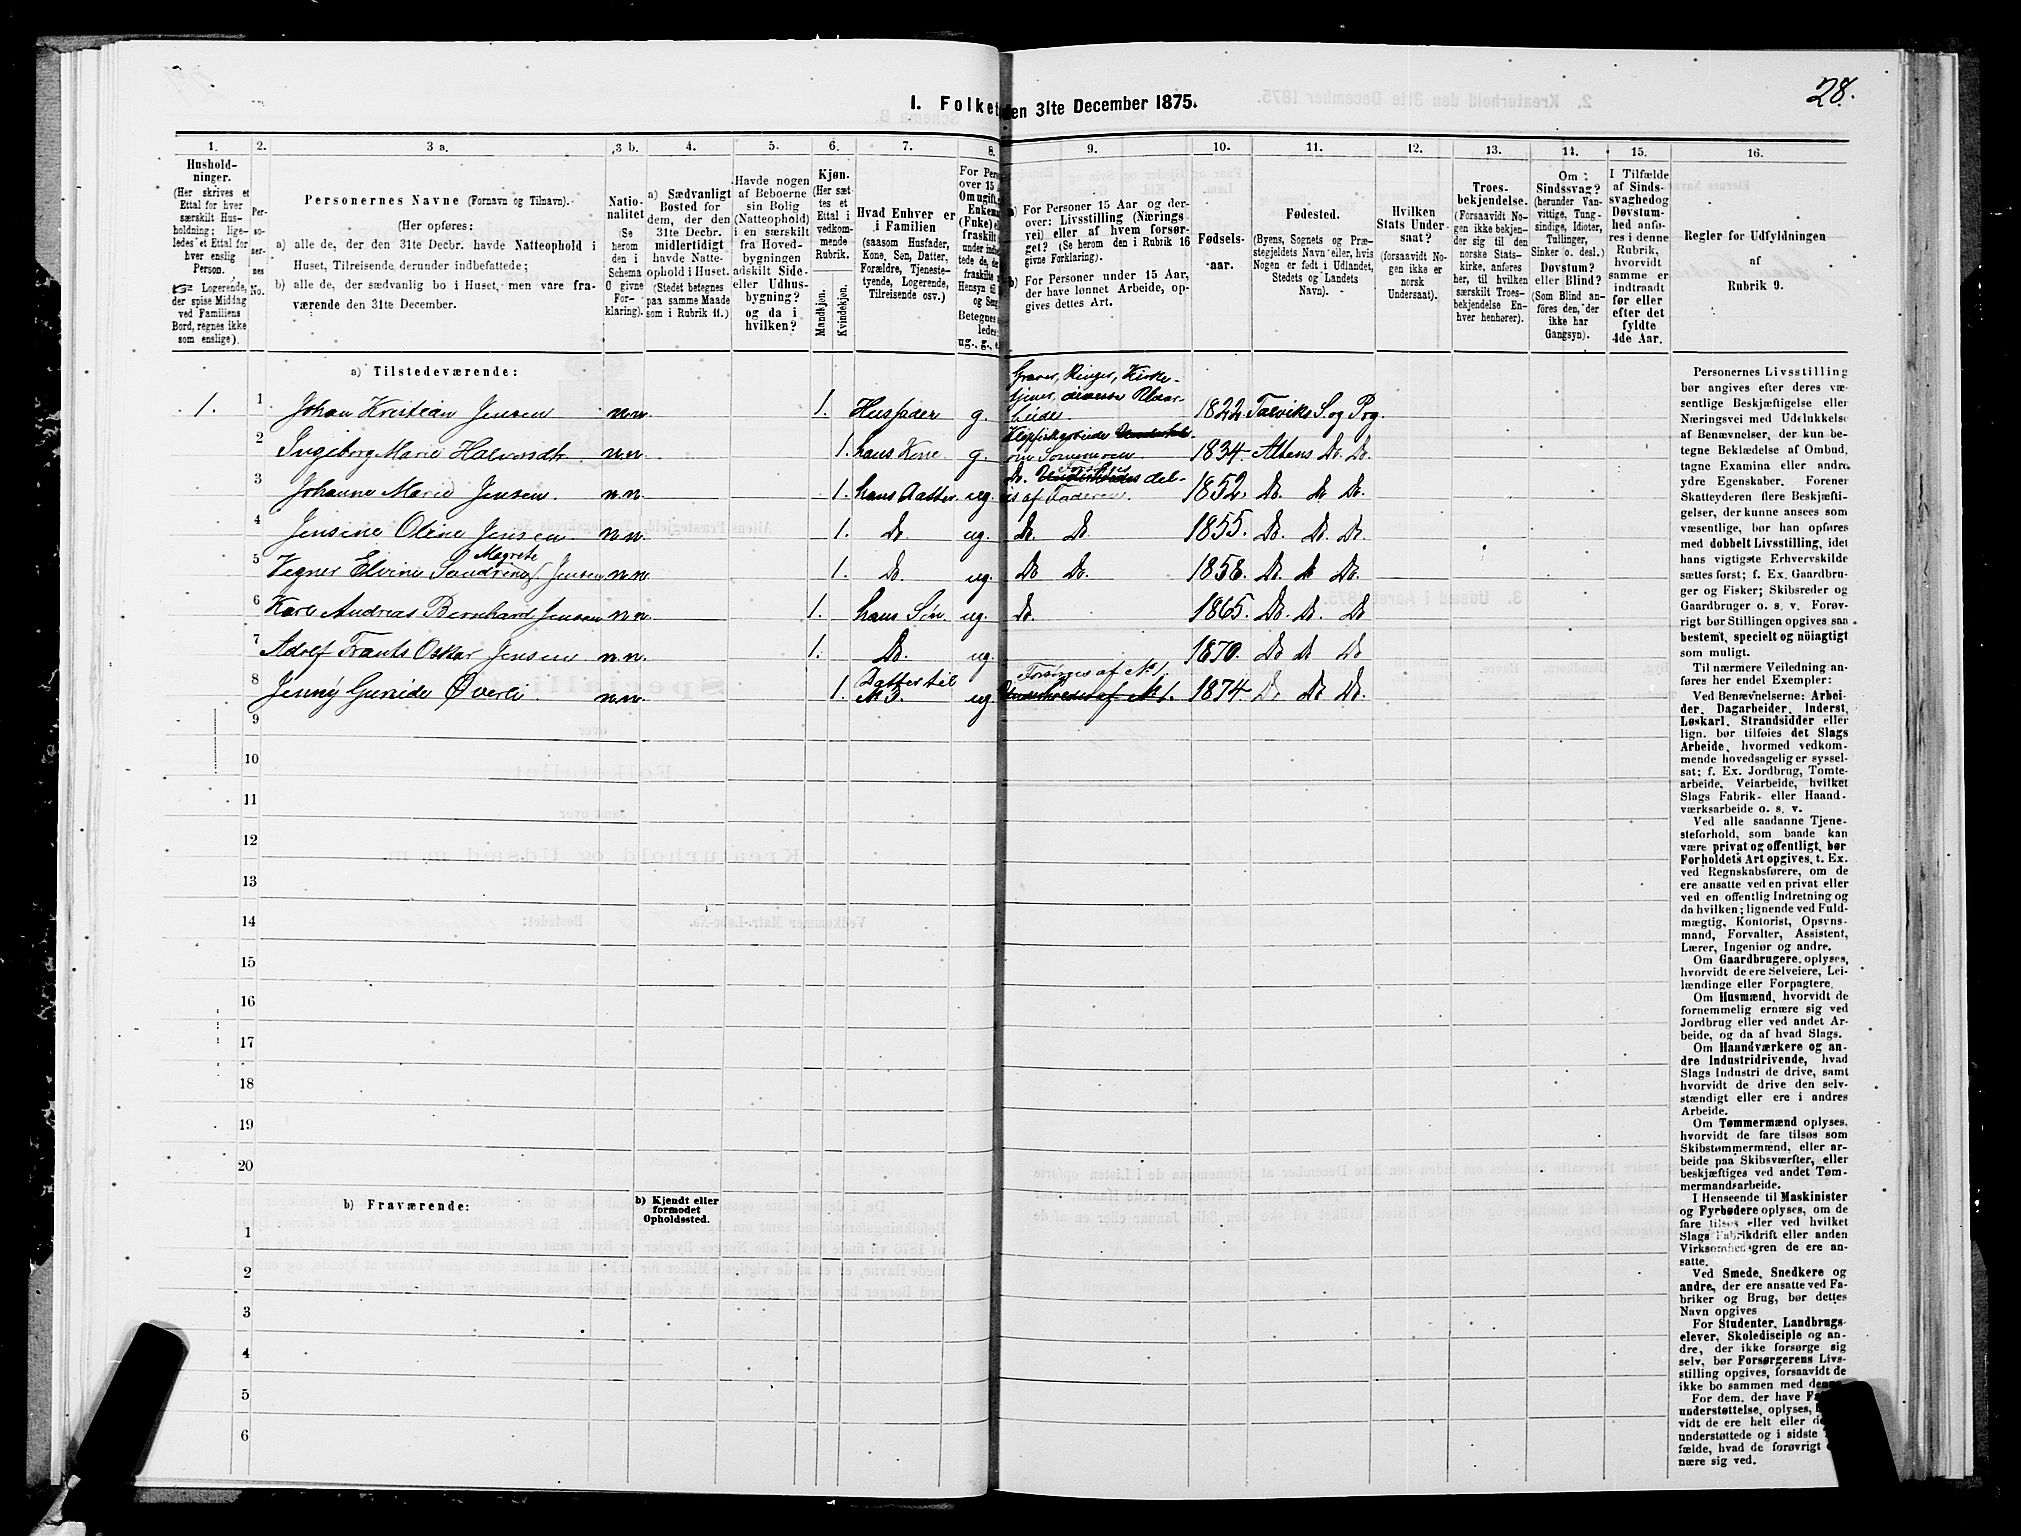 28.
I. Folket den 31te December 1875.
1. 2. 3 a. 3 b. 4. 5. 6. 7. 8. 9. 10. 11. 12. 13. 14. 15. 16.
Hushold-
ninger.
(Her skrives et
Ettal for hver
særskilt Hus-
holdning; lige-
ledes et Ettal for
hver enslig
Person.
Logerende,
der spise Middag
ved Familiens
Bord, regnes ikke
som enslige).
Per-
so-
ner-
nes
No.
Personernes Navne (Fornavn og Tilnavn).
(Her opføres:
a) alle de, der den 31te Decbr. havde Natteophold i
Huset, Tilreisende derunder indbefattede;
b) alle de, der sædvanlig bo i Huset, men våre fra-
værende den 31te December.
Natio-
nalitet
(Se
herom
den i
Schema
O givne
For-
klaring).
a) Sædvanligt
Bosted for
dem, der den
31te Decbr.
midlertidigt
havde Natte-
ophold i Huset.
(Stedet betegnes
paa samme Maade
som i Rubrik 11.)
Havde nogen
af Beboerne
sin Bolig
(Natteophold)
i en særskilt
fra Hoved-
bygningen
adskilt Side-
eller Udhus-
bygning?
og da i
hvilken?
Kjøn.
(Her sæt-
tes et
Ettal i
vedkom-
mende
Rubrik.
Mandkjøn.
Kvindekjøn.
Hvad Enhver er
i Familien
(saasom Husfader,
Kone, Søn, Datter,
Forældre, Tjeneste-
tyende, Logerende,
Tilreisende osv.).
For Pers
over 15 A
Om ugift, g
Enkema
(Enke) e
fraskilt
ug., g., e
a) For Personer 15 Aar og der-
over: Livsstilling (Nærings-
vei) eller af hvem forsør-
get? (Se herom den i Rubrik 16
givne Forklaring).
b) For Personer under 15 Aar,
der have lønnet Arbeide, op-
gives dettes Art.
Fødsels-
aar.
Fødested.
(Byens, Sognets og Præ-
stegjeldets Navn eller, hvis
Nogen er født i Udlandet,
Stedets og Landets
Navn).
Hvilken
Stats Under-
saat?
(forsaavidt No-
gen ikke er
norsk
Undersaat).
Troes-
bekjendelse.
(Forsaavidt No-
gen ikke bekjen-
der sig til den
norske Stats-
kirke, anføres
her, til hvilken
særskilt Troes-
bekjendelse En-
hver henhører).
Om
Sindssvag?
(herunder Van-
vittige, Tung-
sindige, Idioter,
Tullinger,
Sinker o. desl.)
Døvstum?
eller Blind?
(Som Blind an-
føres den, der
ikke har
Gangsyn).
I Tilfælde
af Sinds-
svaghed og
Døvstum-
hed anfø-
res i denne
Rubrik,
hvorvidt
samme er
indtraadt
før eller
efter det
fyldte
4de Aar.
Regler for Udfyldningen
af
Rubrik 9.
a) Tilstedeværende:
1. 1 Johan Kristian Jensen n.n. 1. Husfader g. Graver, Ringer, Kirke- 1822 Talviks S. og Prg.
2 Ingeborg Marie Halvorsdtr. n.n. 1. hans Kone g. om Sommeren 1834. Altens Do. Do.
3 Johanne Marie Jensen. n.n. 1. hans Datter ug. Do. Forsørges del- af Faderen. 1852. Do. Do. Do.
4 Jensine Oline Jensen n.n. 1. Do. ug. Do. Do. 1855. Do. Do. Do.
5 Vegner Elvine Sandrine Magrete Jensen n.n. 1. Do. ug. Do. Do. 1858. Do. Do. Do.
6 Karl Andreas Bernhard Jensen n.n. 1. hans Søn ug. Do. 1865. Do. Do. Do.
7 Adolf Frants Oskar Jensen n.n. 1. Do. ug. 1870. Do. Do. Do.
8 Jenny Gunide Øverli. n.n. 1. Datter til No 3. ug. Forsørges af No 1. Underholdes af No 1. 1874. Do. Do. Do.
9
10
11
12
13
14
15
16
17
18
19
20
b) Fraværende:
b) Kjendt eller
formodet
Opholdssted.
1
2
3
4
5
6
Personernes Livsstilling
bør angives efter deres væ-
sentlige Beskjæftigelse eller
Næringsvei med Udelukkelse
af Benævnelser, der kun be-
tegne Beklædelse af Ombud,
tagne Examina eller andre
ydre Egenskaber. Forener
Skatteyderen flere Beskjæfti-
gelser, der kunne ansees som
væsentlige, bør han opføres
med dobbelt Livsstilling, idet
hans vigtigste Erhvervskilde
sættes først; f. Ex. Gaardbru-
ger og Fisker; Skibsreder og
Gaardbruger o. s. v. Forøv-
rigt bør Stillingen opgives saa
bestemt, specielt og nöiagtigt
som muligt.
Til nærmere Veiledning an-
føres her endel Exempler:
Ved Benævnelserne: Arbei-
der, Dagarbeider, Inderst,
Løskarl, Strandsidder eller
lign. bør tilføies det Slags
Arbeide, hvormed vedkom-
mende hovedsagelig er syssel-
sat; f. Ex. Jordbrug, Tømte-
arbeide, Veiarbeide, hvilket
Slags Fabrik- eller Haand-
værksarbeide o. s. v.
Ved alle saadanne Tjene-
steforhold, som baade kan
være privat og offentligt, bør
Forholdets Art opgives, t. Ex.
ved Regnskabsførere, om de
ere ansatte ved en privat eller
ved en offentlig Indretning og
da hvilken; lignende ved Fuld-
mægtig, Kontorist, Opsyns-
mand, Forvalter, Assistent,
Lærer, Ingeniør og andre.
Om Gaardbrugere oplyses,
hvorvidt de ere Selveiere, Lei-
lændinge eller Forpagtere.
Om Husmænd, hvorvidt de
fornemmelig ernære sig ved
Jordbrug eller ved andet Ar-
beide, og da af hvad Slags.
Om Haandværkere og an-
dre Industridrivende, hvad
Slags Industri de drive, samt
hvorvidt de drive den selv-
stændigt eller ere i andres
Arbeide.
Om Tømmermænd oplyses,
hvorvidt de fare tilsøs som
Skibstømmermænd, eller ar-
beide paa Skibsværfter, eller
beskjæftiges ved andet Tøm-
mermandsarbeide.
I Henseende til Maskinister
og Fyrbødere oplyses, om de
fare tilsøs eller ved hvilket
Slags Fabrikdrift eller anden
Virksomhedsgren de ere an-
satte.
Ved Smede, Snedkere og
andre, der ere ansatte ved Fa-
briker og Brug, bør dettes
Navn opgives
For Studenter, Landbrugs-
elever, Skoledisciple og an-
dre, der ikke forsørge sig
selv, bør Forsørgerens Livs-
stilling opgives, forsaavidt de
ikke bo sammen med denne.
For dem, der have
understøttelse, oplyses,
vidt de ere helt eller
understøttede og i sidste
fælde, hvad de forøvrigt
nære sig ved.